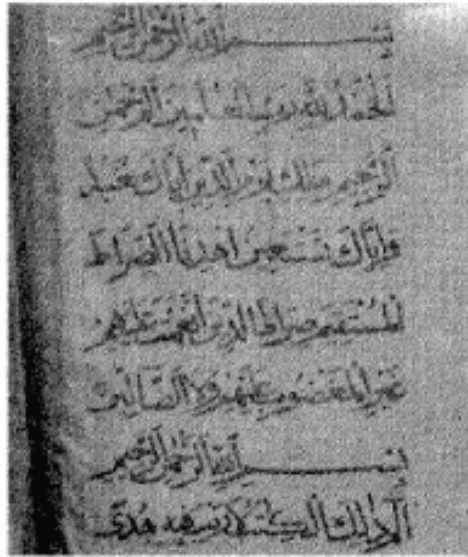 بسم الله الرحمن الرحيم
الحمد لله رب العلمين الرحمن
الرحيم ملك يوم الدين اياك نعبد
واياك نستعين اهدنا الصراط
المستقيم صراط الذين انعمت عليهم
غير المغضوب عليهم ولا الضالين
بسم الله الرحمن الرحيم
الم ذلك الكتب لا ريب فيه هدى